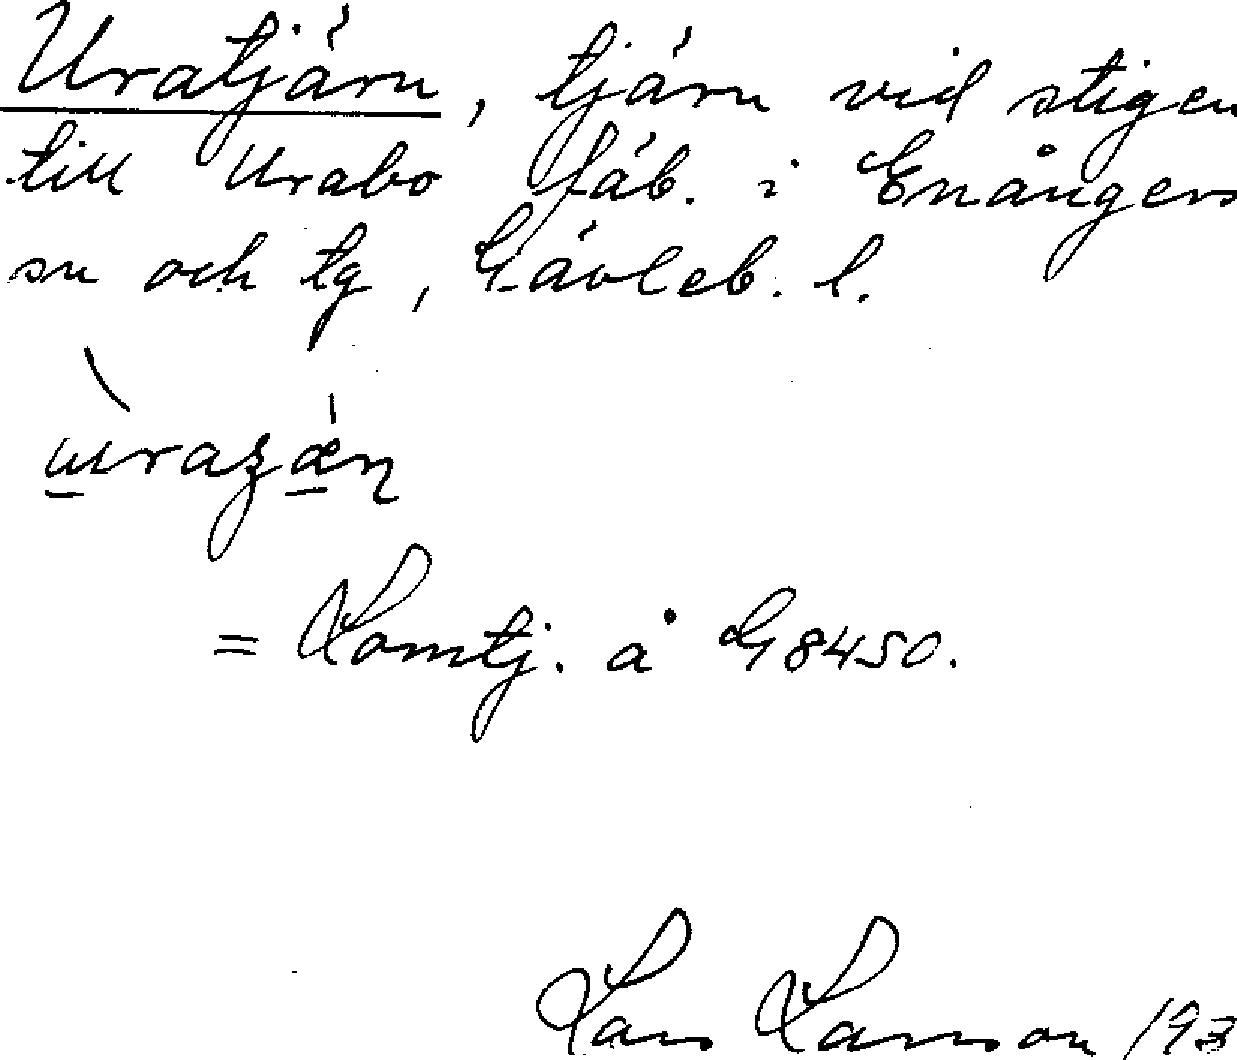 Uratjärn, tjärn vid stigen
till Urabo fäb. i Enångers
sn och tg, Gävleb. l.
= Lomtj. å G 8450.
Lars Larsson 193